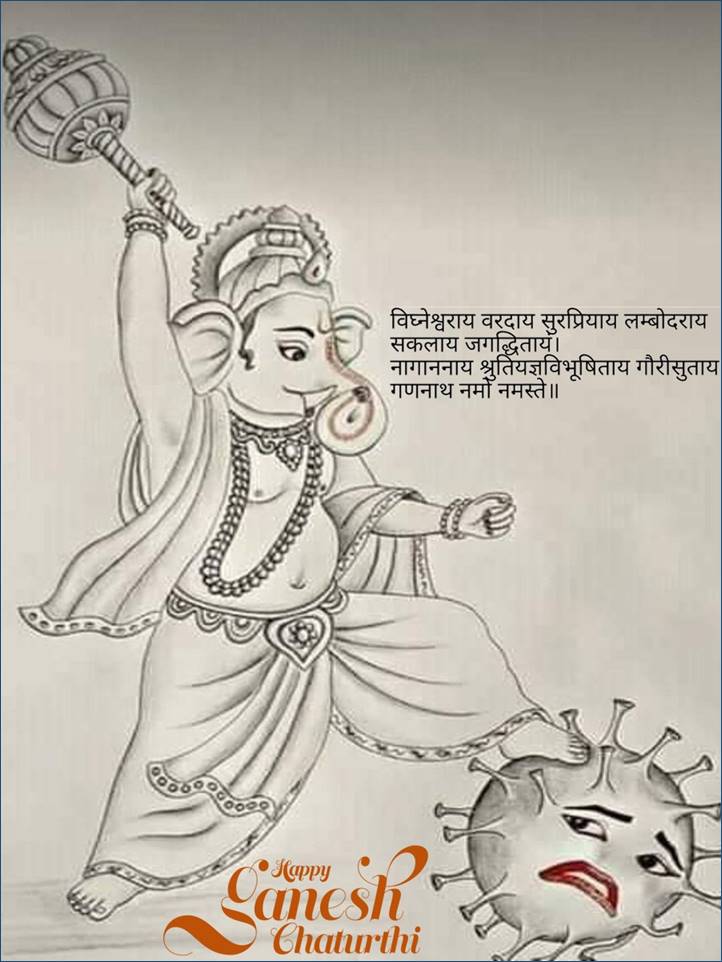 विघ्नेश्वराय वरदाय सुरप्रियाय लम्बोदराय
सकलाय जगद्धिताय।
नागाननाय श्रुतियज्ञविभूषिताय गौरीसुताय
गणनाथ नमो नमस्ते॥
Happy
Ganesh
Chaturthi